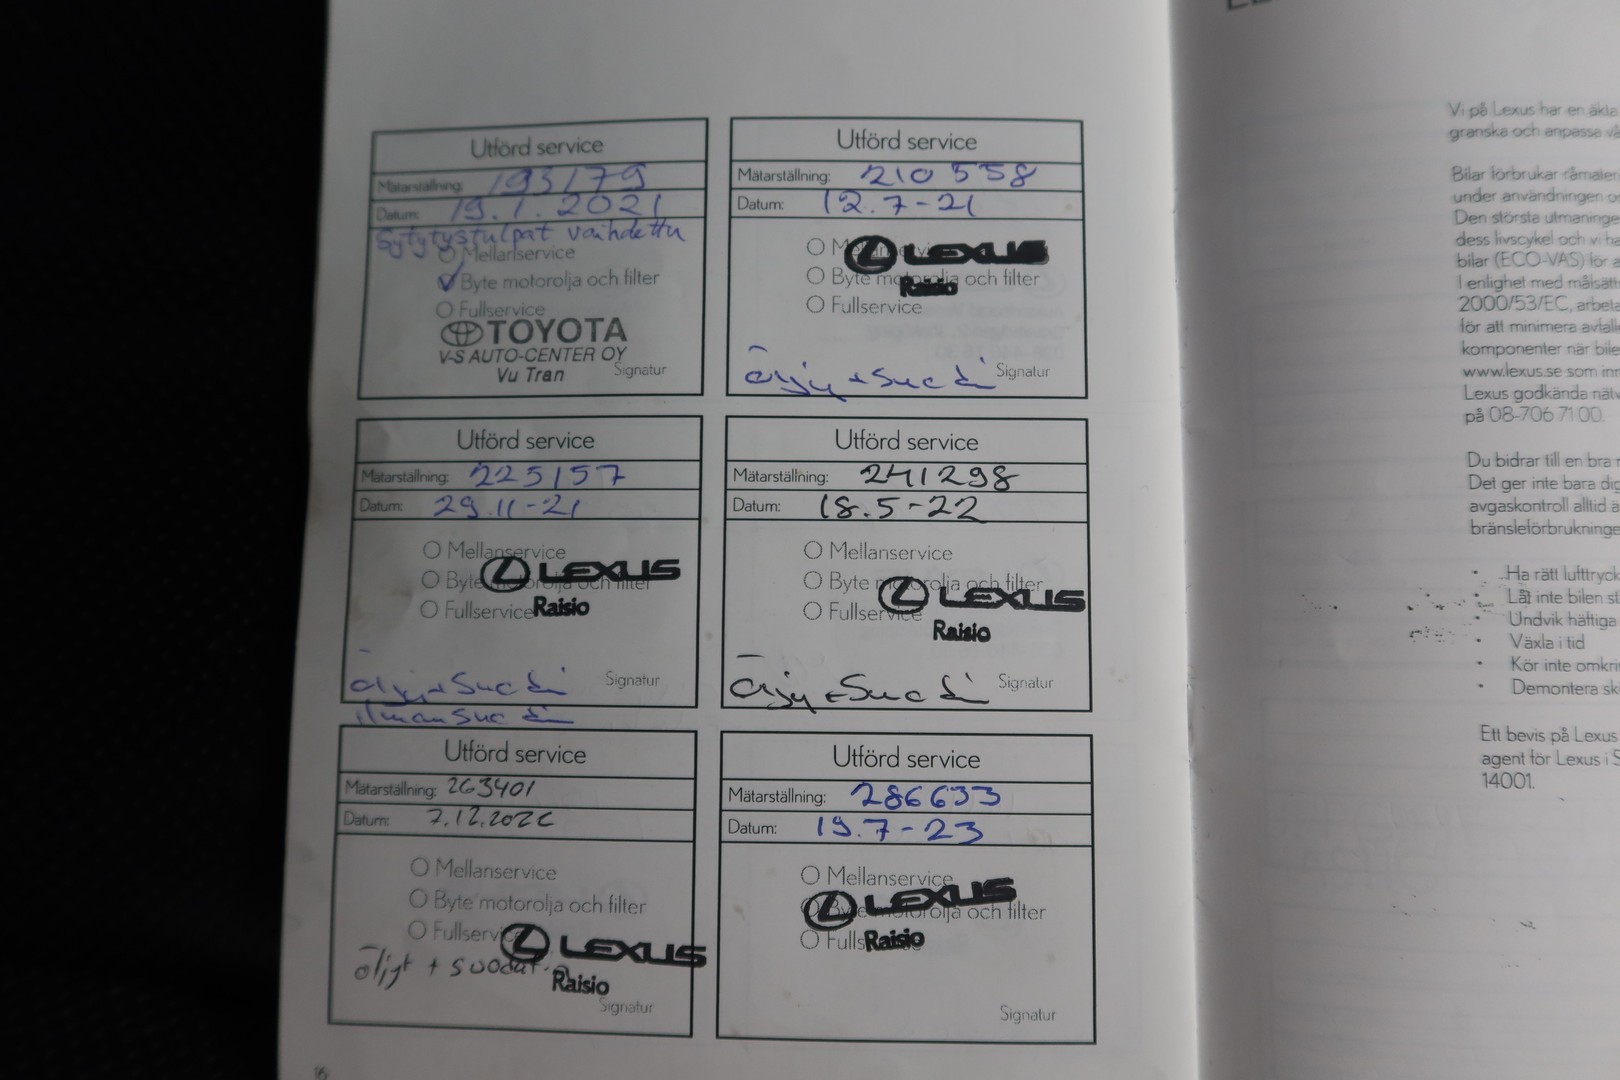 Utförd service
Mätarställning: 193179
Datum: 19.1.2021
Sytytystulpat vaihdettu
Mellanservice
Byte motorolja och filter
Fullservice
TOYOTA
V-S AUTO-CENTER OY
Vu Tran
Signatur
Utförd service
Mätarställning: 210558
Datum: 12.7-21
LEXUS
Byte motorolja och filter
Raisio
Fullservice
Signatur
Utförd service
Mätarställning: 225157
Datum: 29.11-21
Mellanservice
LEXUS
Byte motorolja och filter
Fullservice
Raisio
Signatur
Utförd service
Mätarställning: 241298
Datum: 18.5-22
Mellanservice
Byte motorolja och filter
LEXUS
Fullservice
Raisio
Signatur
Utförd service
Mätarställning: 263401
Datum: 7.12.202
Mellanservice
Byte motorolja och filter
Fullservice
LEXUS
öljyt +
Raisio
Signatur
Utförd service
Mätarställning: 286633
Datum: 19.7-23
Mellanservice
LEXUS
Byte motorolja och filter
Raisio
Signatur
16
Vi på Lexus har en äkta
granska och anpassa vå
Bilar förbrukar råmater
under användningen o
Den största utmaninge
dess livscykel och vi ha
bilar (ECO-VAS) för a
I enlighet med målsätt
2000/53/EC, arbeta
för att minimera avfall
komponenter när bile
www.lexus.se som inn
Lexus godkända nätv
på 08-706 71 00.
Du bidrar till en bra
Det ger inte bara dig
avgaskontroll alltid ä
bränsleförbrukninge
• Ha rätt lufttryck
• Låt inte bilen st
• Undvik häftiga
• Växla i tid
• Kör inte omkri
• Demontera ski
Ett bevis på Lexus
agent för Lexus i S
14001.